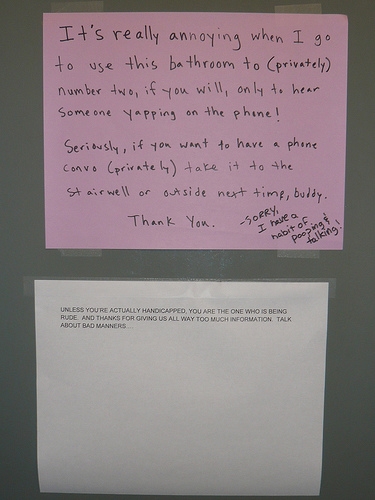 It's really annoying when I go
to use this bathroom to (privately)
number two, if you will, only to hear
someone yapping on the phone!
Seriously, if you want to have a phone
convo (privately) take it to the
stairwell or outside next time, buddy.
Thank You.
-SORRY,
I have a
habit of
pooping &
talking!
UNLESS YOU'RE ACTUALLY HANDICAPPED, YOU ARE THE ONE WHO IS BEING
RUDE. AND THANKS FOR GIVING US ALL WAY TOO MUCH INFORMATION. TALK
ABOUT BAD MANNERS....